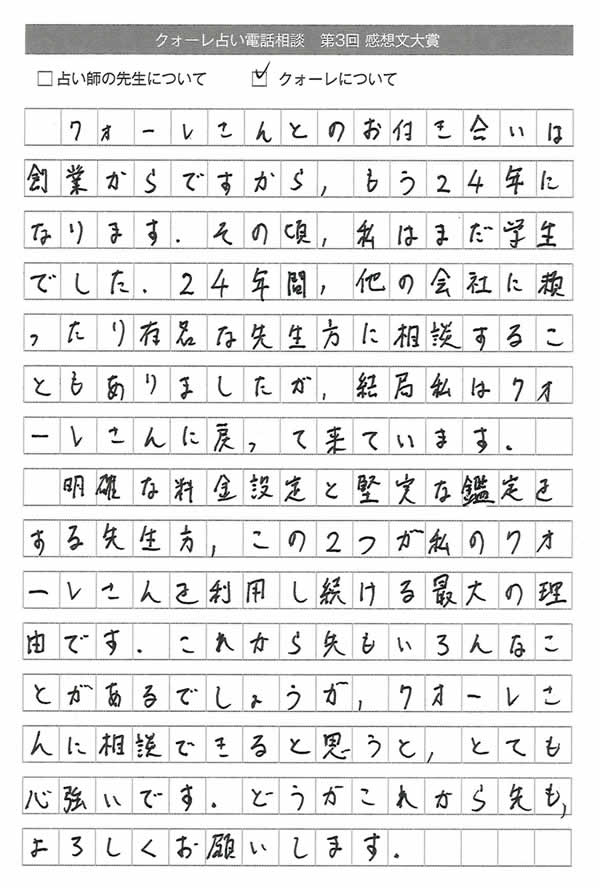 クォーレ占い電話相談 第3回 感想文大賞
□占い師の先生について ☑クォーレについて
クォーレさんとのお付き合いは
創業からですから,もう24年に
なります.その頃,私はまだ学生
でした.24年間,他の会社に頼
ったり有名な先生方に相談するこ
ともありましたが,結局私はクォ
ーレさんに戻って来ています.
明確な料金設定と堅実な鑑定を
する先生方,この2つが私のクォ
ーレさんを利用し続ける最大の理
由です.これから先もいろんなこ
とがあるでしょうが,クォーレさ
んに相談できると思うと,とても
心強いです.どうかこれから先も,
よろしくお願いします.